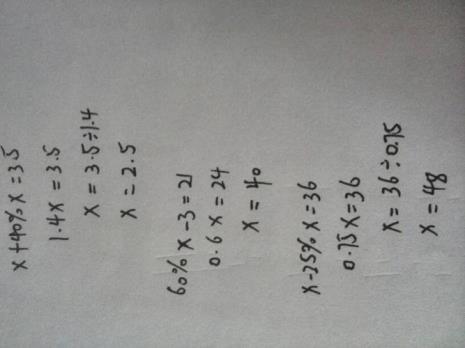 x+40%x=3.5
1.4x=3.5
x=3.5÷1.4
x=2.5
60%x-3=21
0.6x=24
x=40
x-25%x=36
0.75x=36
x=36÷0.75
x=48